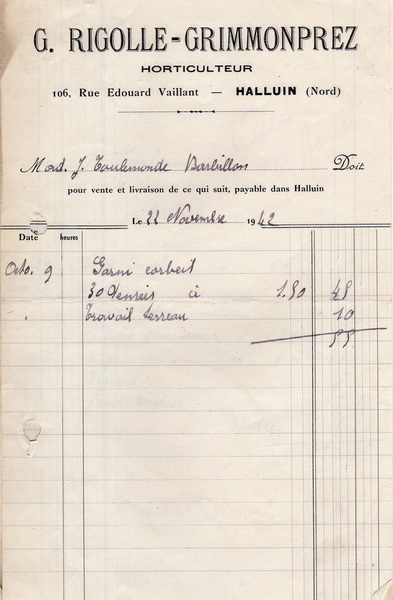 G. RIGOLLE-GRIMMONPREZ
HORTICULTEUR
106, Rue Edouard Vaillant — HALLUIN (Nord)
Mad. J. Toulemonde Barbillon Doit
pour vente et livraison de ce qui suit, payable dans Halluin
Le 22 Novembre 1942
Date heures
Octo. 9 Garni corbeil
30 à 1.50 45
Travail terreau 10
55